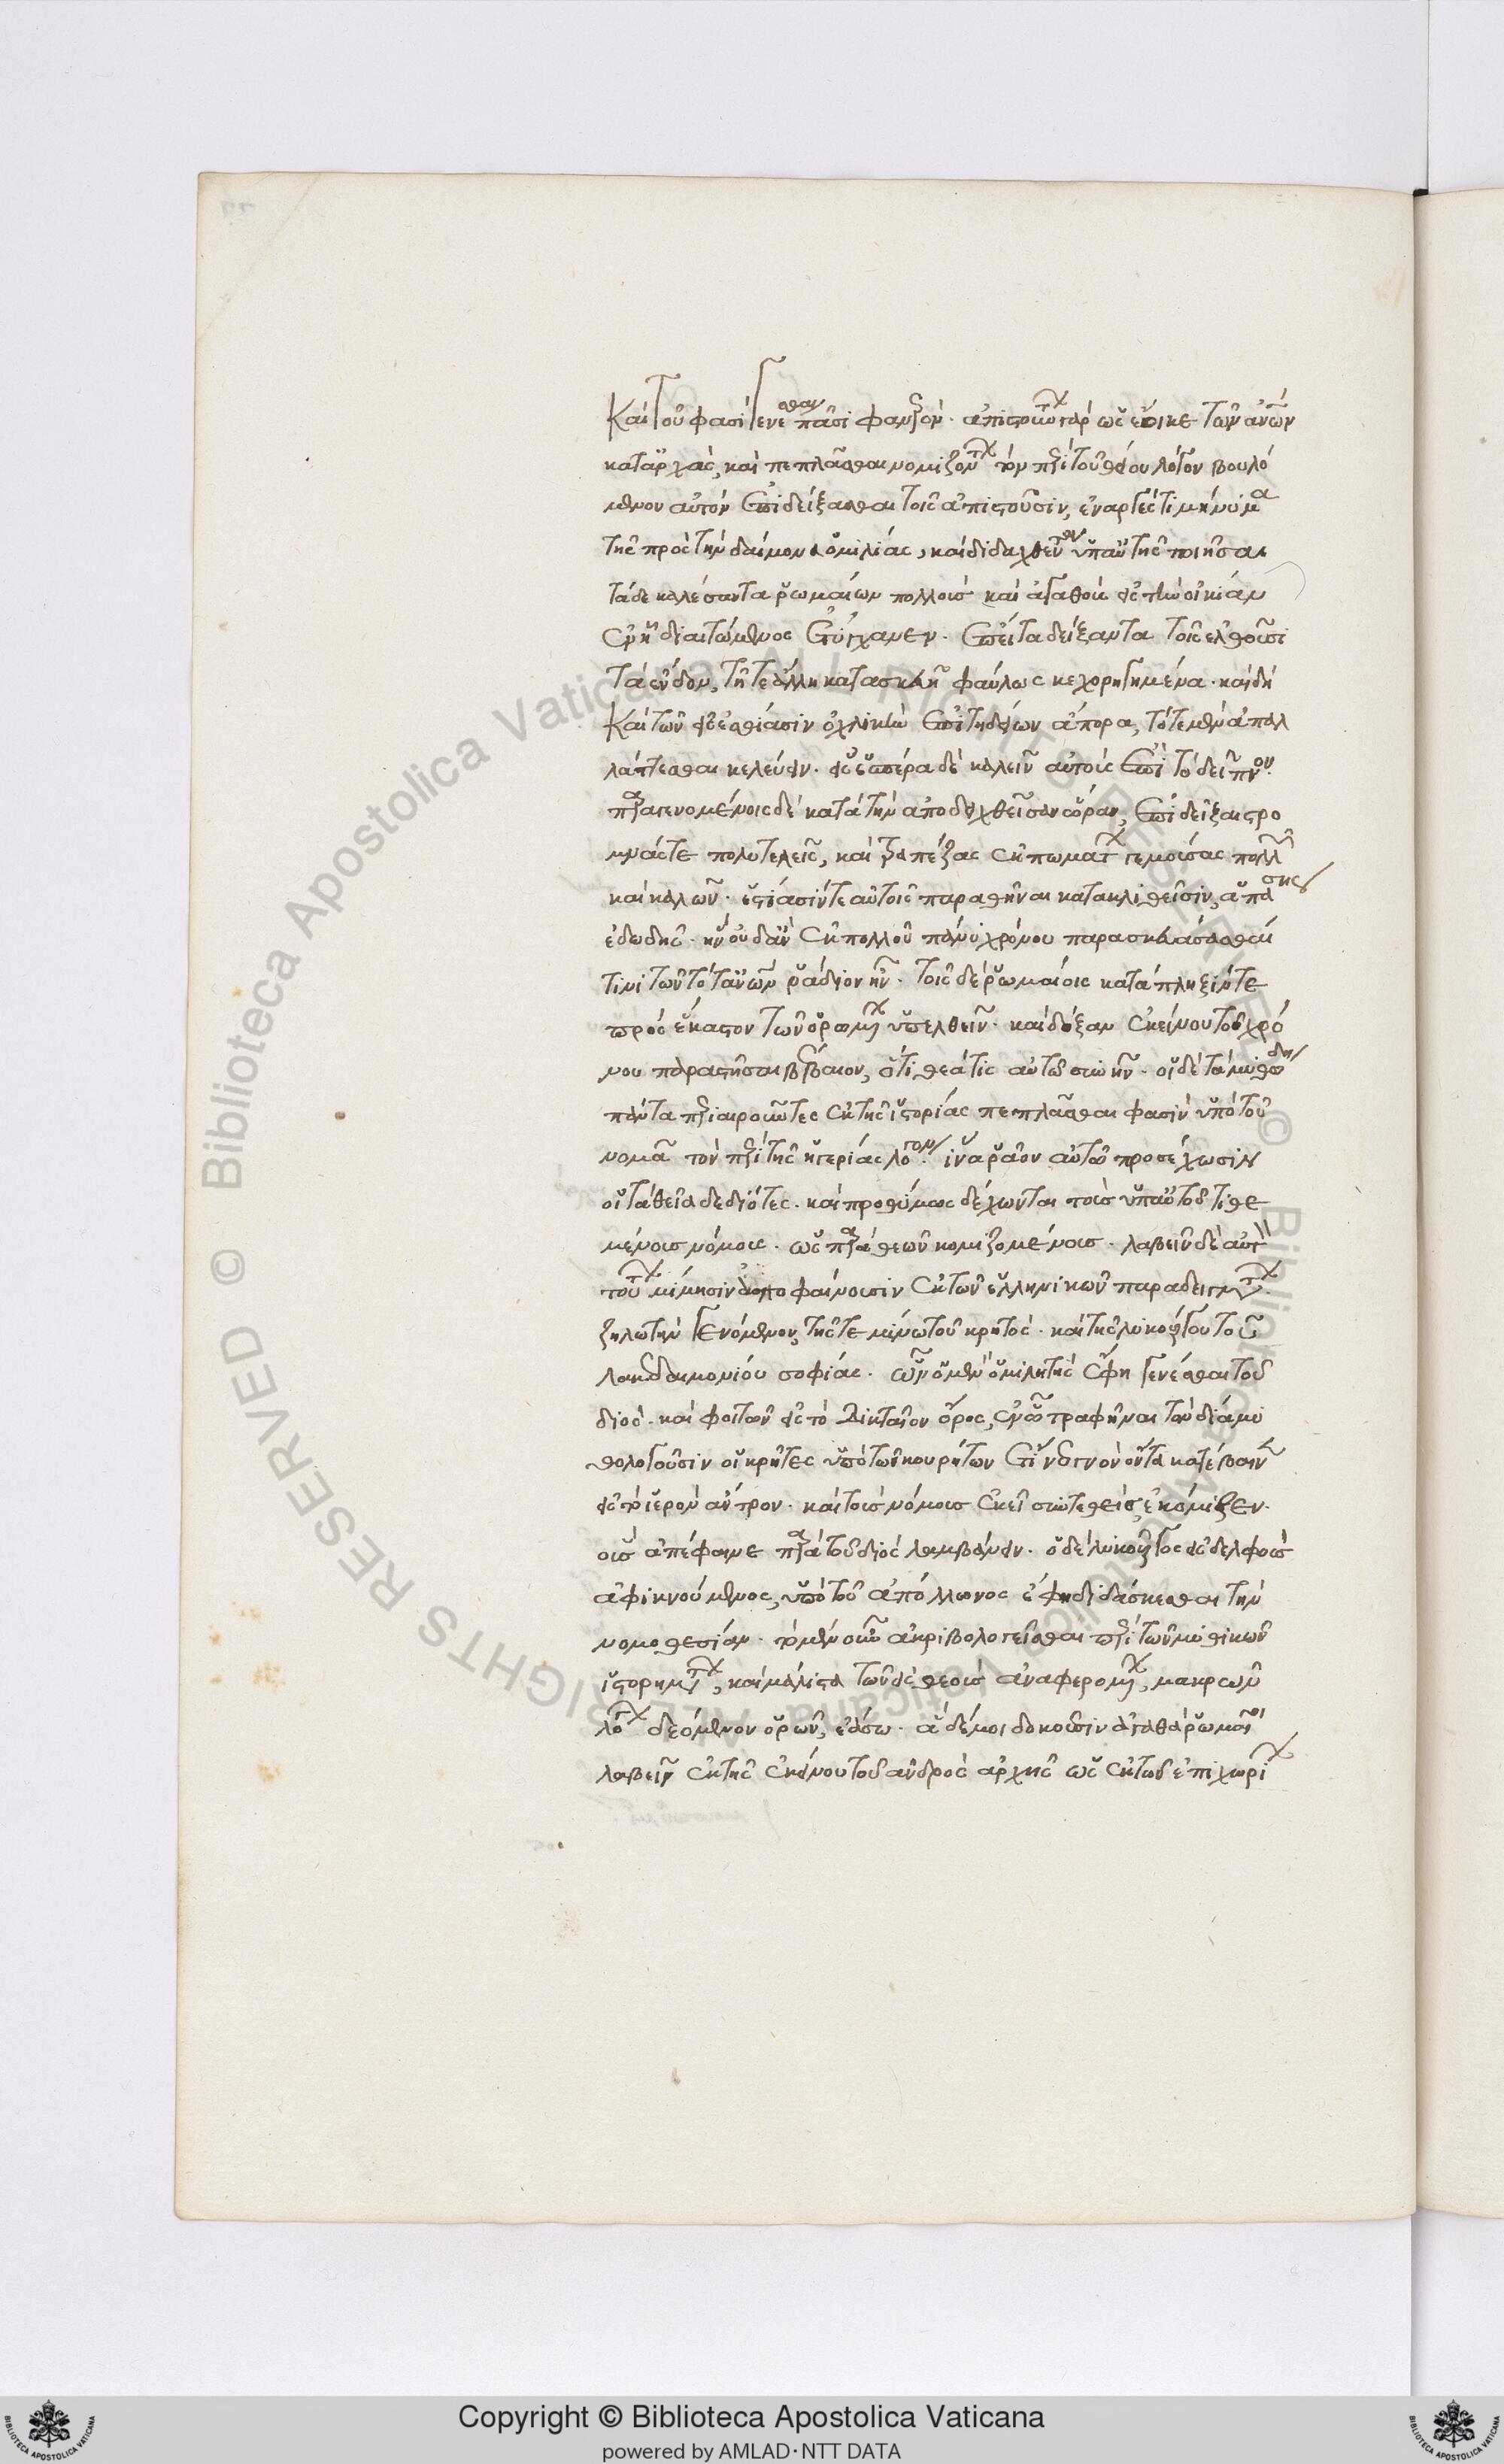 καὶ τοῦ φασὶ γενέσθαι πᾶσι φανερὸν. ἀπιστούντων γὰρ ὡς ἔοικε τῶν ἀνθρώπων
καταρχὰς, καὶ πεπλάσθαι νομιζόντων τὸν περὶ τοῦ θείου λόγον βουλό
μενον αὐτὸν ἐπιδείξασθαι τοῖς ἀπιστοῦσιν, ἐναργές τι μήνυμα
τῆς πρὸς τὴν δαίμονα ὁμιλίας, καὶ διδαχθέντα ὑπ' αὐτῆς ποιῆσαι
τάδε καλέσαντα ῥωμαίων πολλοὺς καὶ ἀγαθοὺς εἰς τὴν οἰκίαν
ἐν ᾗ διαιτώμενος ἐτύγχανεν. ἔπειτα δείξαντα τοῖς ἐλθοῦσι
τὰ ἔνδον, τῇ τε ἄλλῃ κατασκευῇ φαύλως κεχορηγημένα. καὶ δὴ
καὶ τῶν εἰς ἑστίασιν ὀχλικὴν ἐπιτηδείων ἄπορα, τότε μὲν ἀπαλ
λάττεσθαι κελεύειν. εἰς ἑσπέρα δὲ καλεῖν αὐτοὺς ἐπὶ τὸ δεῖπνον.
παραγενομένοις δὲ κατὰ τὴν ἀποδειχθεῖσαν ὥραν, ἐπιδεῖξαι στρο
μνάς τε πολυτελεῖς, καὶ τραπέζας ἐκπωμάτων γεμούσας πολλῶν
καὶ καλῶν. ἑστίασίν τε αὐτοῖς παραθῆναι κατακλιθεῖσιν, ἁπάσης
ἐδωδῆς. ἣν οὐδ' ἂν ἐκ πολλοῦ πάνυ χρόνου παρασκευάσασθαί
τινι τῶν τότ' ἀνθρώπων ῥάδιον ἦν. τοῖς δὲ ῥωμαίοις κατάπληξίν τε
πρὸς ἕκαστον τῶν ὁρωμένων ὑπελθεῖν. καὶ δόξαν ἐκείνου τοῦ χρό
νου παραστῆσαι βέβαιον, ὅτι θεά τις αὐτῷ συνῆν. οἱ δὲ τὰ μυθώδη
πάντα περιαιροῦντες ἐκ τῆς ἱστορίας πεπλάσθαι φασὶν ὑπὸ τοῦ
νομᾶ τὸν περὶ τῆς ἠγερίας λόγον. ἵνα ῥᾷον αὐτῷ προσέχωσιν
οἱ τὰ θεῖα δεδιότες. καὶ προθύμως δέχωνται τοὺς ὑπ' αὐτοῦ τιθε
μένους νόμους. ὡς παρὰ θεῶν κομιζομένους. λαβεῖν δὲ αὐτὸν
τούτων μίμησιν ἀποφαίνουσιν ἐκ τῶν ἑλληνικῶν παραδειγμάτων.
ζηλωτὴν γενόμενον, τῆς τε μίνω τοῦ κρητὸς. καὶ τῆς λυκούργου τοῦ
λακεδαιμονίου σοφίας. ὧν ὁ μὲν ὁμιλητὴς ἔφη γενέσθαι τοῦ
διὸς. καὶ φοιτῶν εἰς τὸ δικταῖον ὄρος, ἐν ᾧ τραφῆναι τὸν δία μυ
θολογοῦσιν οἱ κρῆτες ὑπὸ τῶν κουρήτων ἔτι νεογνὸν ὄντα κατέβαινεν
εἰς τὸ ἱερὸν ἄντρον. καὶ τοὺς νόμους ἐκεῖ συντεθεὶς ἐκόμιζεν.
οὓς ἀπέφαινε παρὰ τοῦ διὸς λαμβάνειν. ὁ δὲ λυκοῦργος εἰς δελφοὺς
ἀφικνούμενος, ὑπὸ τοῦ ἀπόλλωνος ἔφη διδάσκεσθαι τὴν
νομοθεσίαν. τὸ μὲν οὖν ἀκριβολογεῖσθαι περὶ τῶν μυθικῶν
ἱστορημάτων, καὶ μάλιστα τῶν εἰς θεοὺς ἀναφερομένων, μακρῶν
λόγων δεόμενον ὁρῶν, ἐάσω. ἃ δέ μοι δοκοῦσιν ἀγαθὰ ῥωμαῖοι
λαβεῖν ἐκ τῆς ἐκείνου τοῦ ἀνδρὸς ἀρχῆς ὡς ἐκ τῶν ἐπιχωρίων
Copyright © Biblioteca Apostolica Vaticana
powered by AMLAD·NTT DATA